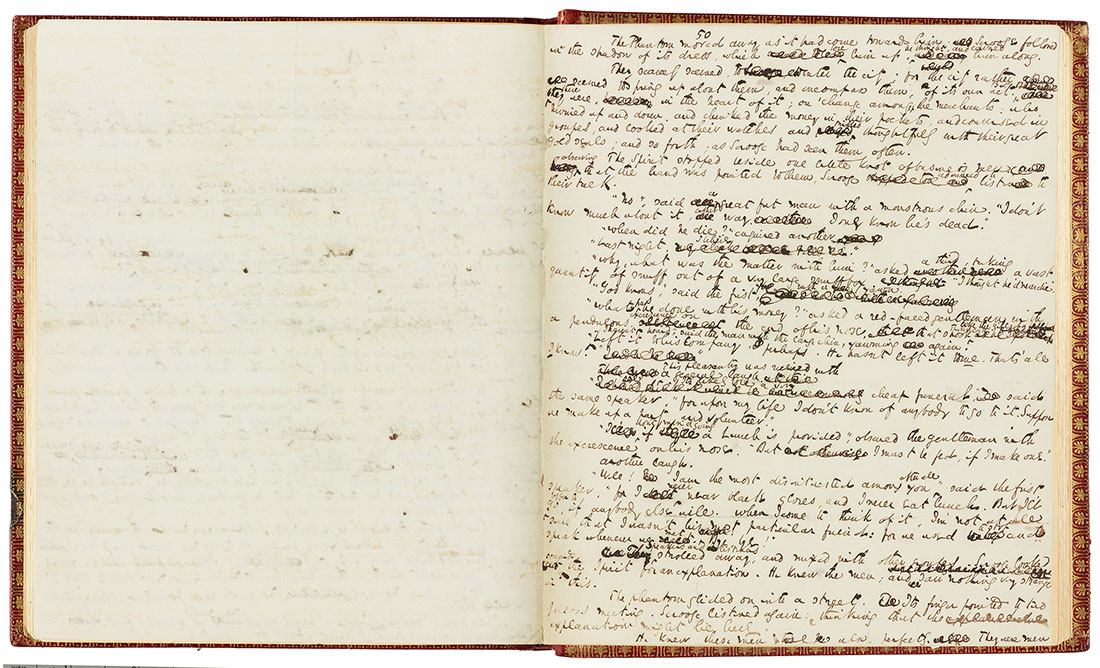 50
The Phantom moved away as it had come towards him. Scrooge followed
in the shadow of its dress, which bore him up, he thought, and carried him along.
They scarcely seemed to enter the city; for the city rather
seemed to spring up about them, and encompass them of its own act.
they were, in the heart of it; on 'change among the merchants; who
hurried up and down, and chinked the money in their pockets, and conversed in
groupes, and looked at their watches and thoughtfully with their great
gold seals; and so forth; as Scrooge had seen them often.
The Spirit stopped beside one little knot of business men
observing that the hand was pointed to them, Scrooge advanced to listen to
their talk.
"No", said a great fat man with a monstrous chin. "I don't
know much about it either way. I only know he's dead."
"When did he die?" enquired another
"Last night, I believe."
"Why, what was the matter with him?" asked a third, taking a vast
quantity of snuff out of a very large snuff box. "I thought he'd never die."
"God knows", said the first with a yawn.
"What has he done with his money?" asked a red-faced gentleman with
a pendulous excrescence on the end of his nose
"I haven't heard", said the man with the large chin, yawning again.
"Left it to his Company, perhaps. He hasn't left it to me. That's all
I know."
This pleasantry was received with
a general laugh
"It's likely to be a very cheap funeral" said
the same speaker, "for upon my life I don't know of anybody to go to it. Suppose
we make up a party and volunteer."
"I don't mind going if a lunch is provided," observed the gentleman with
the excrescence on his nose. "But I must be fed, if I make one."
Another laugh.
"Well! I am the most disinterested among you after all" said the first
speaker, "for I never wear black gloves, and I never eat lunch. But I'll
if anybody else will. When I come to think of it, I'm not at all
sure that I wasn't his most particular friend: for we used to stop and
speak whenever we met. Bye, bye!"
Speakers and listeners strolled away, and mixed with other
the Spirit for an explanation. He knew the men, and saw nothing very strange
in this.
The phantom glided on into a street. Its finger pointed to two
persons meeting. Scrooge listened again: thinking that the
explanation might lie here.
He knew these men also, perfectly. They were men